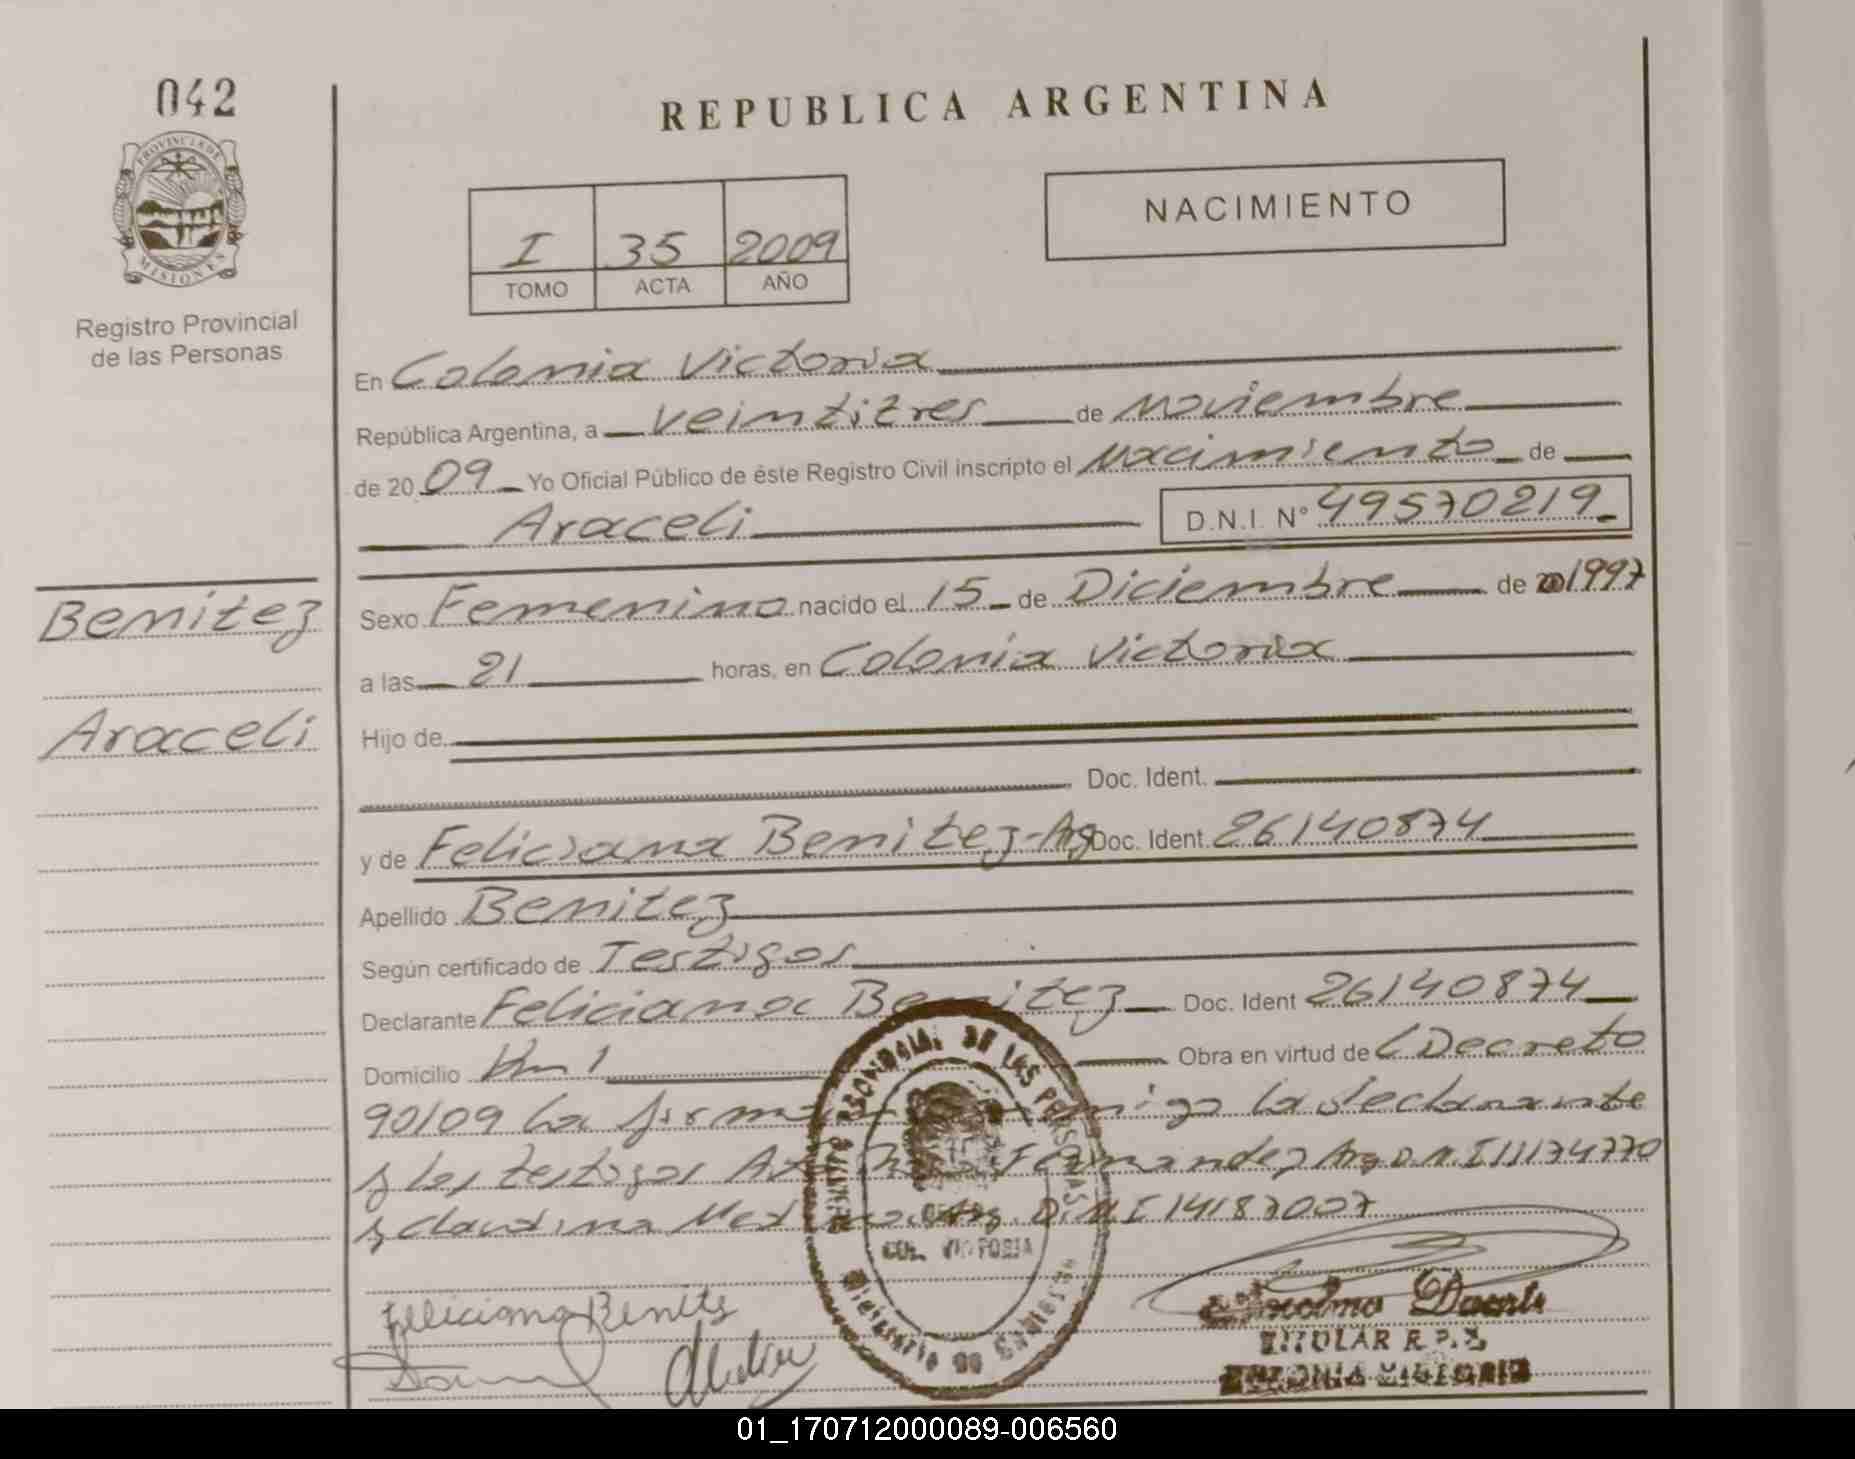 042
REPUBLICA ARGENTINA
PROVINCIA DE MISIONES
Registro Provincial
de las Personas
NACIMIENTO
I 35 2009
TOMO ACTA AÑO
En Colonia Victoria
República Argentina, a veintitres de noviembre
de 2009 Yo Oficial Público de éste Registro Civil inscripto el nacimiento de
Araceli D.N.I. N° 49570219
Benitez
Araceli
Sexo Femenino nacido el 15 de Diciembre de 1997
a las 21 horas, en Colonia Victoria
Hijo de
Doc. Ident.
y de Feliciana Benitez-Arg Doc. Ident. 26140874
Apellido Benitez
Según certificado de Testigos
Declarante Feliciana Benitez Doc. Ident 26140874
Domicilio Km 1 Obra en virtud de Decreto
90/09 la firma conmigo la declarante
y los testigos Fernandez Arg D.N.I 11174770
y Claudina Arg. D.N.I 14187007
COL. VICTORIA
Feliciana Benites
TITULAR R.P.
COLONIA VICTORIA
01_170712000089-006560